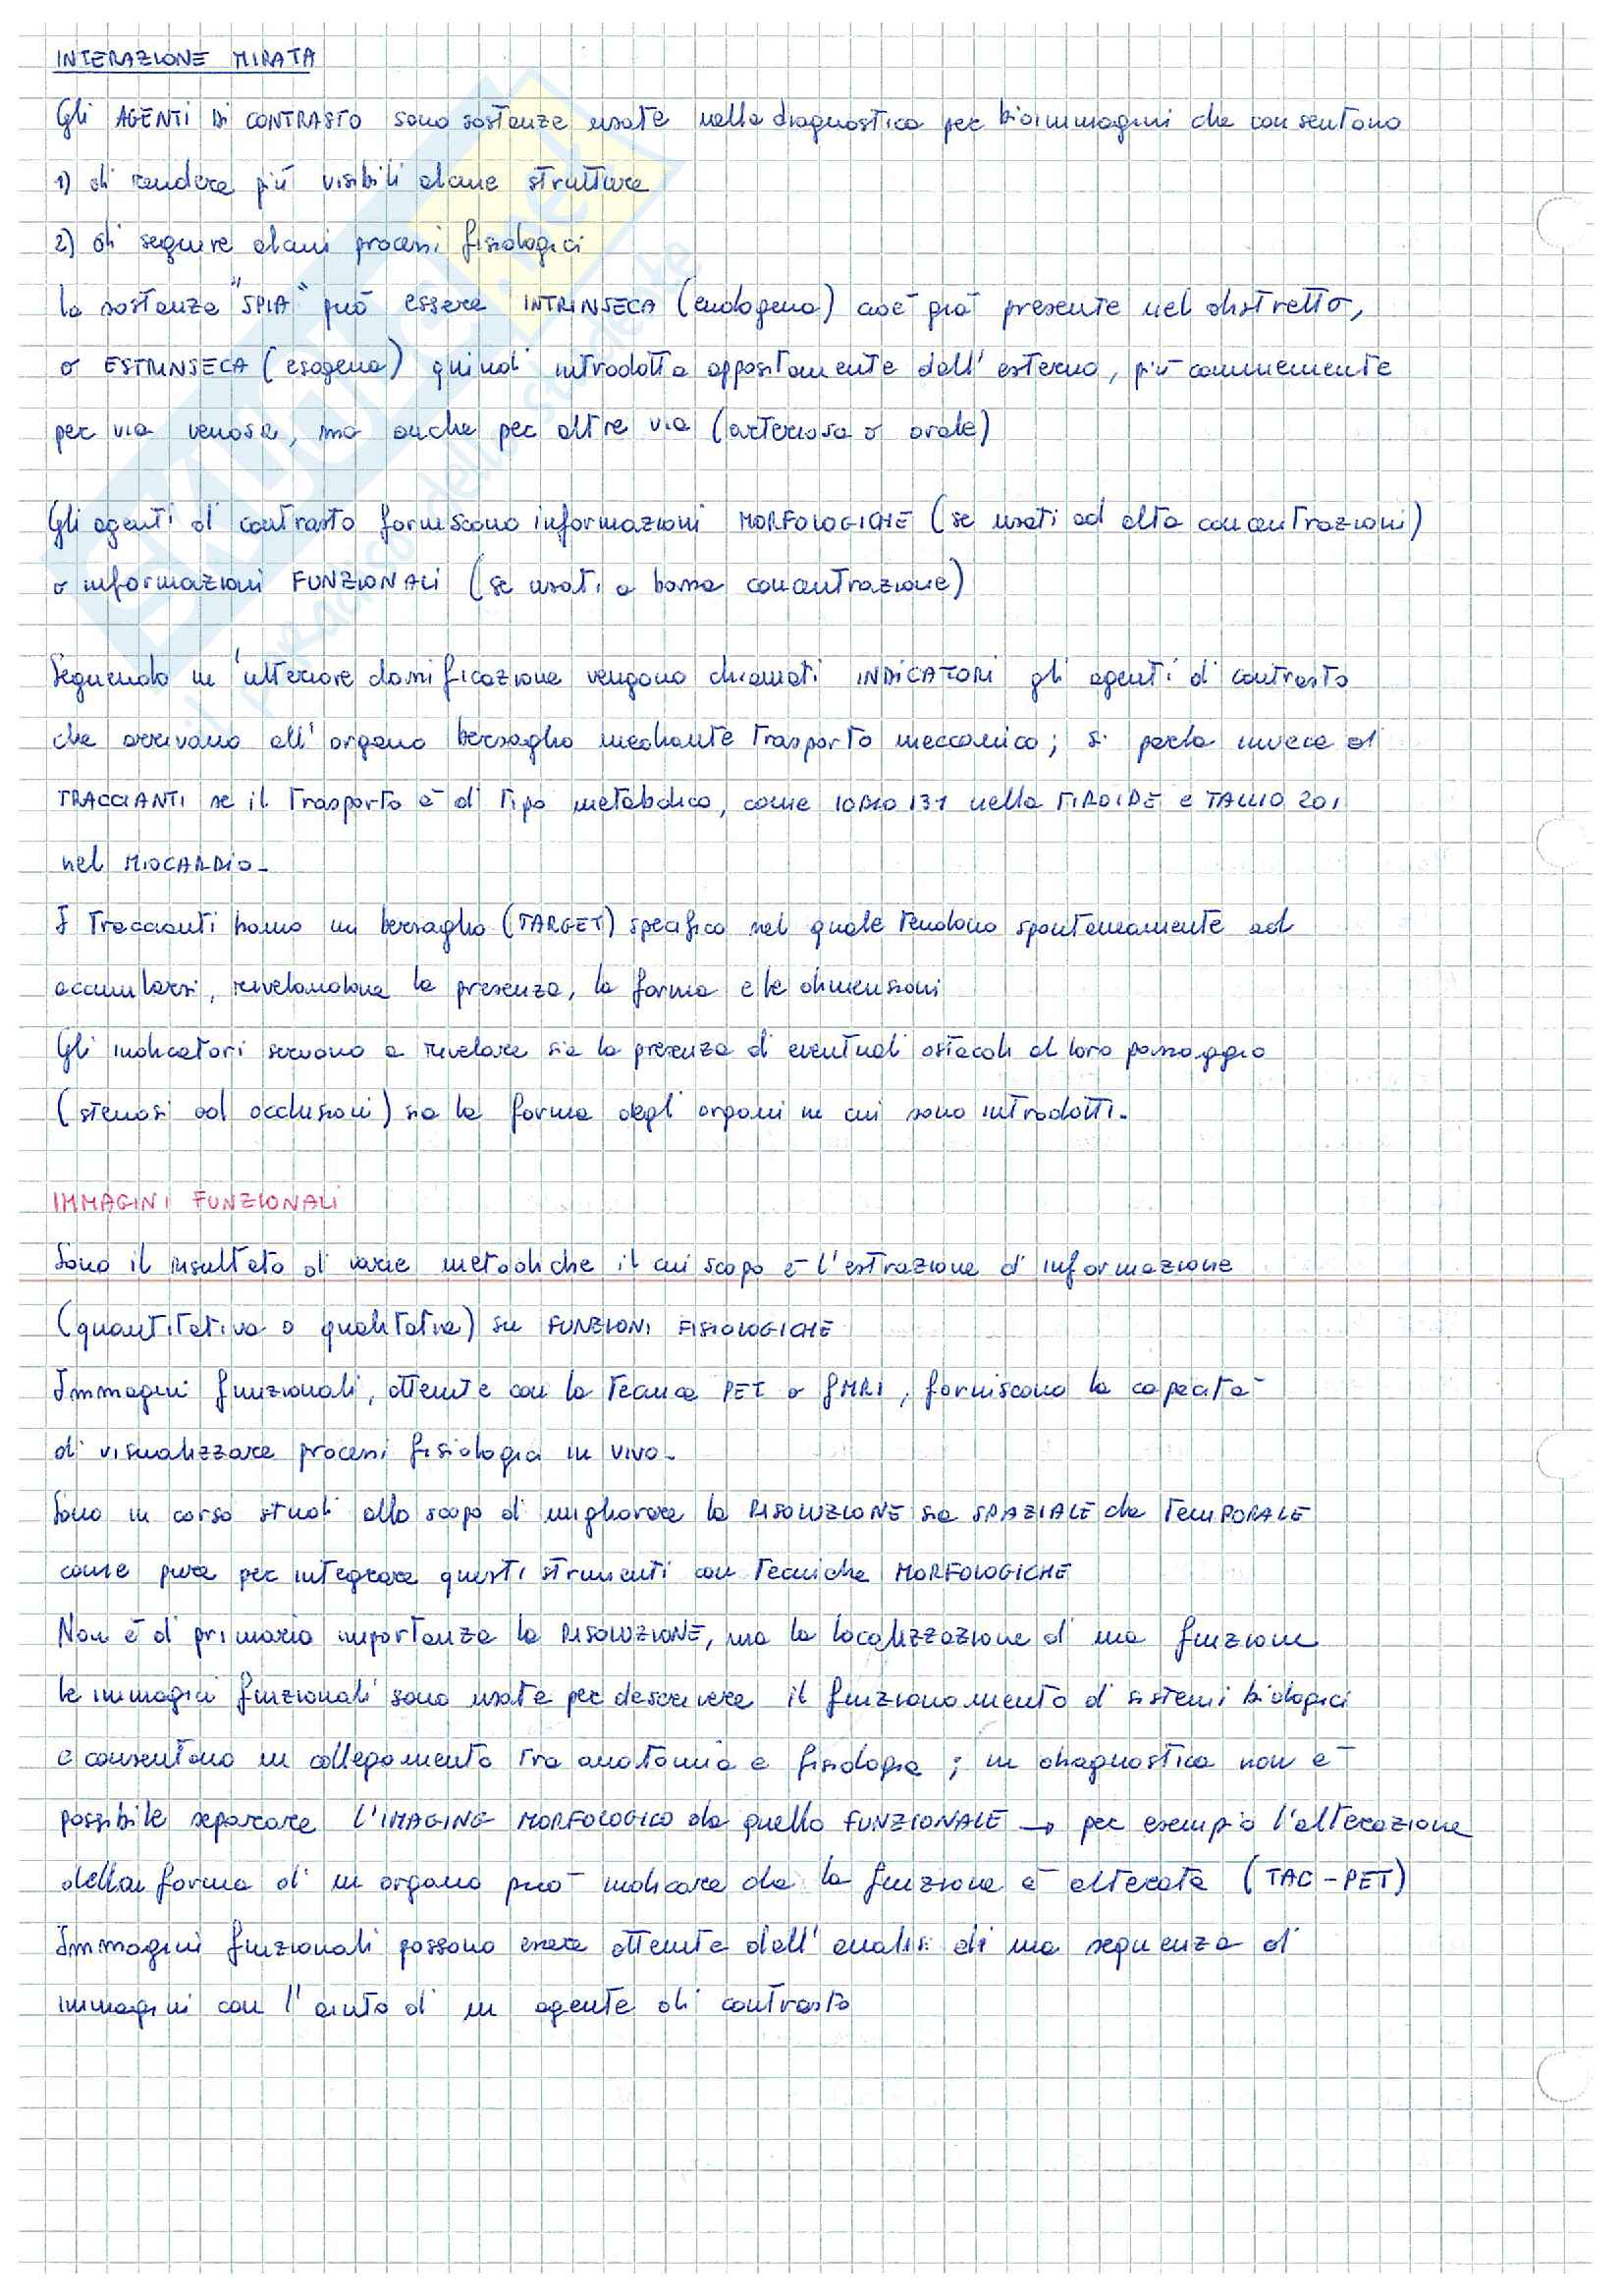 INTERAZIONE MIRATA
Gli AGENTI DI CONTRASTO sono sostanze usate nella diagnostica per bioimmagini che consentono
1) di rendere più visibili alcune strutture
2) di seguire alcuni processi fisiologici
la sostanza "SPIA" può essere INTRINSECA (endogena) cioè già presente nel distretto,
o ESTRINSECA (esogena) quindi introdotta appositamente dall'esterno, più comunemente
per via venosa, ma anche per altre via (arteriosa o orale)
Gli agenti di contrasto forniscono informazioni MORFOLOGICHE (se usati ad alta concentrazioni)
o informazioni FUNZIONALI (se usati a bassa concentrazione)
Seguendo un'ulteriore classificazione vengono chiamati INDICATORI gli agenti di contrasto
che arrivano all'organo bersaglio mediante trasporto meccanico; si parla invece di
TRACCIANTI se il trasporto è di tipo metabolico, come IODIO 131 nella TIROIDE e TALLIO 201
nel MIOCARDIO.
I traccianti hanno un bersaglio (TARGET) specifico nel quale tendono spontaneamente ad
accumularsi, rivelandone la presenza, la forma e le dimensioni
Gli indicatori servono a rivelare sia la presenza di eventuali ostacoli al loro passaggio
(stenosi od occlusioni) sia la forma degli organi in cui sono introdotti.
IMMAGINI FUNZIONALI
Sono il risultato di varie metodiche il cui scopo è l'estrazione di informazione
(quantitativa o qualitativa) su FUNZIONI FISIOLOGICHE
Immagini funzionali, ottenute con la tecnica PET o fMRI, forniscono la capacità
di visualizzare processi fisiologici in vivo.
Sono in corso studi allo scopo di migliorare la RISOLUZIONE sia SPAZIALE che TEMPORALE
come pure per integrare questi strumenti con tecniche MORFOLOGICHE
Non è di primaria importanza la RISOLUZIONE, ma la localizzazione di una funzione
le immagini funzionali sono usate per descrivere il funzionamento di sistemi biologici
e consentono un collegamento tra anatomia e fisiologia; in diagnostica non è
possibile separare l'IMAGING MORFOLOGICO da quello FUNZIONALE → per esempio l'alterazione
della forma di un organo può indicare che la funzione è alterata (TAC-PET)
Immagini funzionali possono essere ottenute dall'analisi di una sequenza di
immagini con l'aiuto di un agente di contrasto